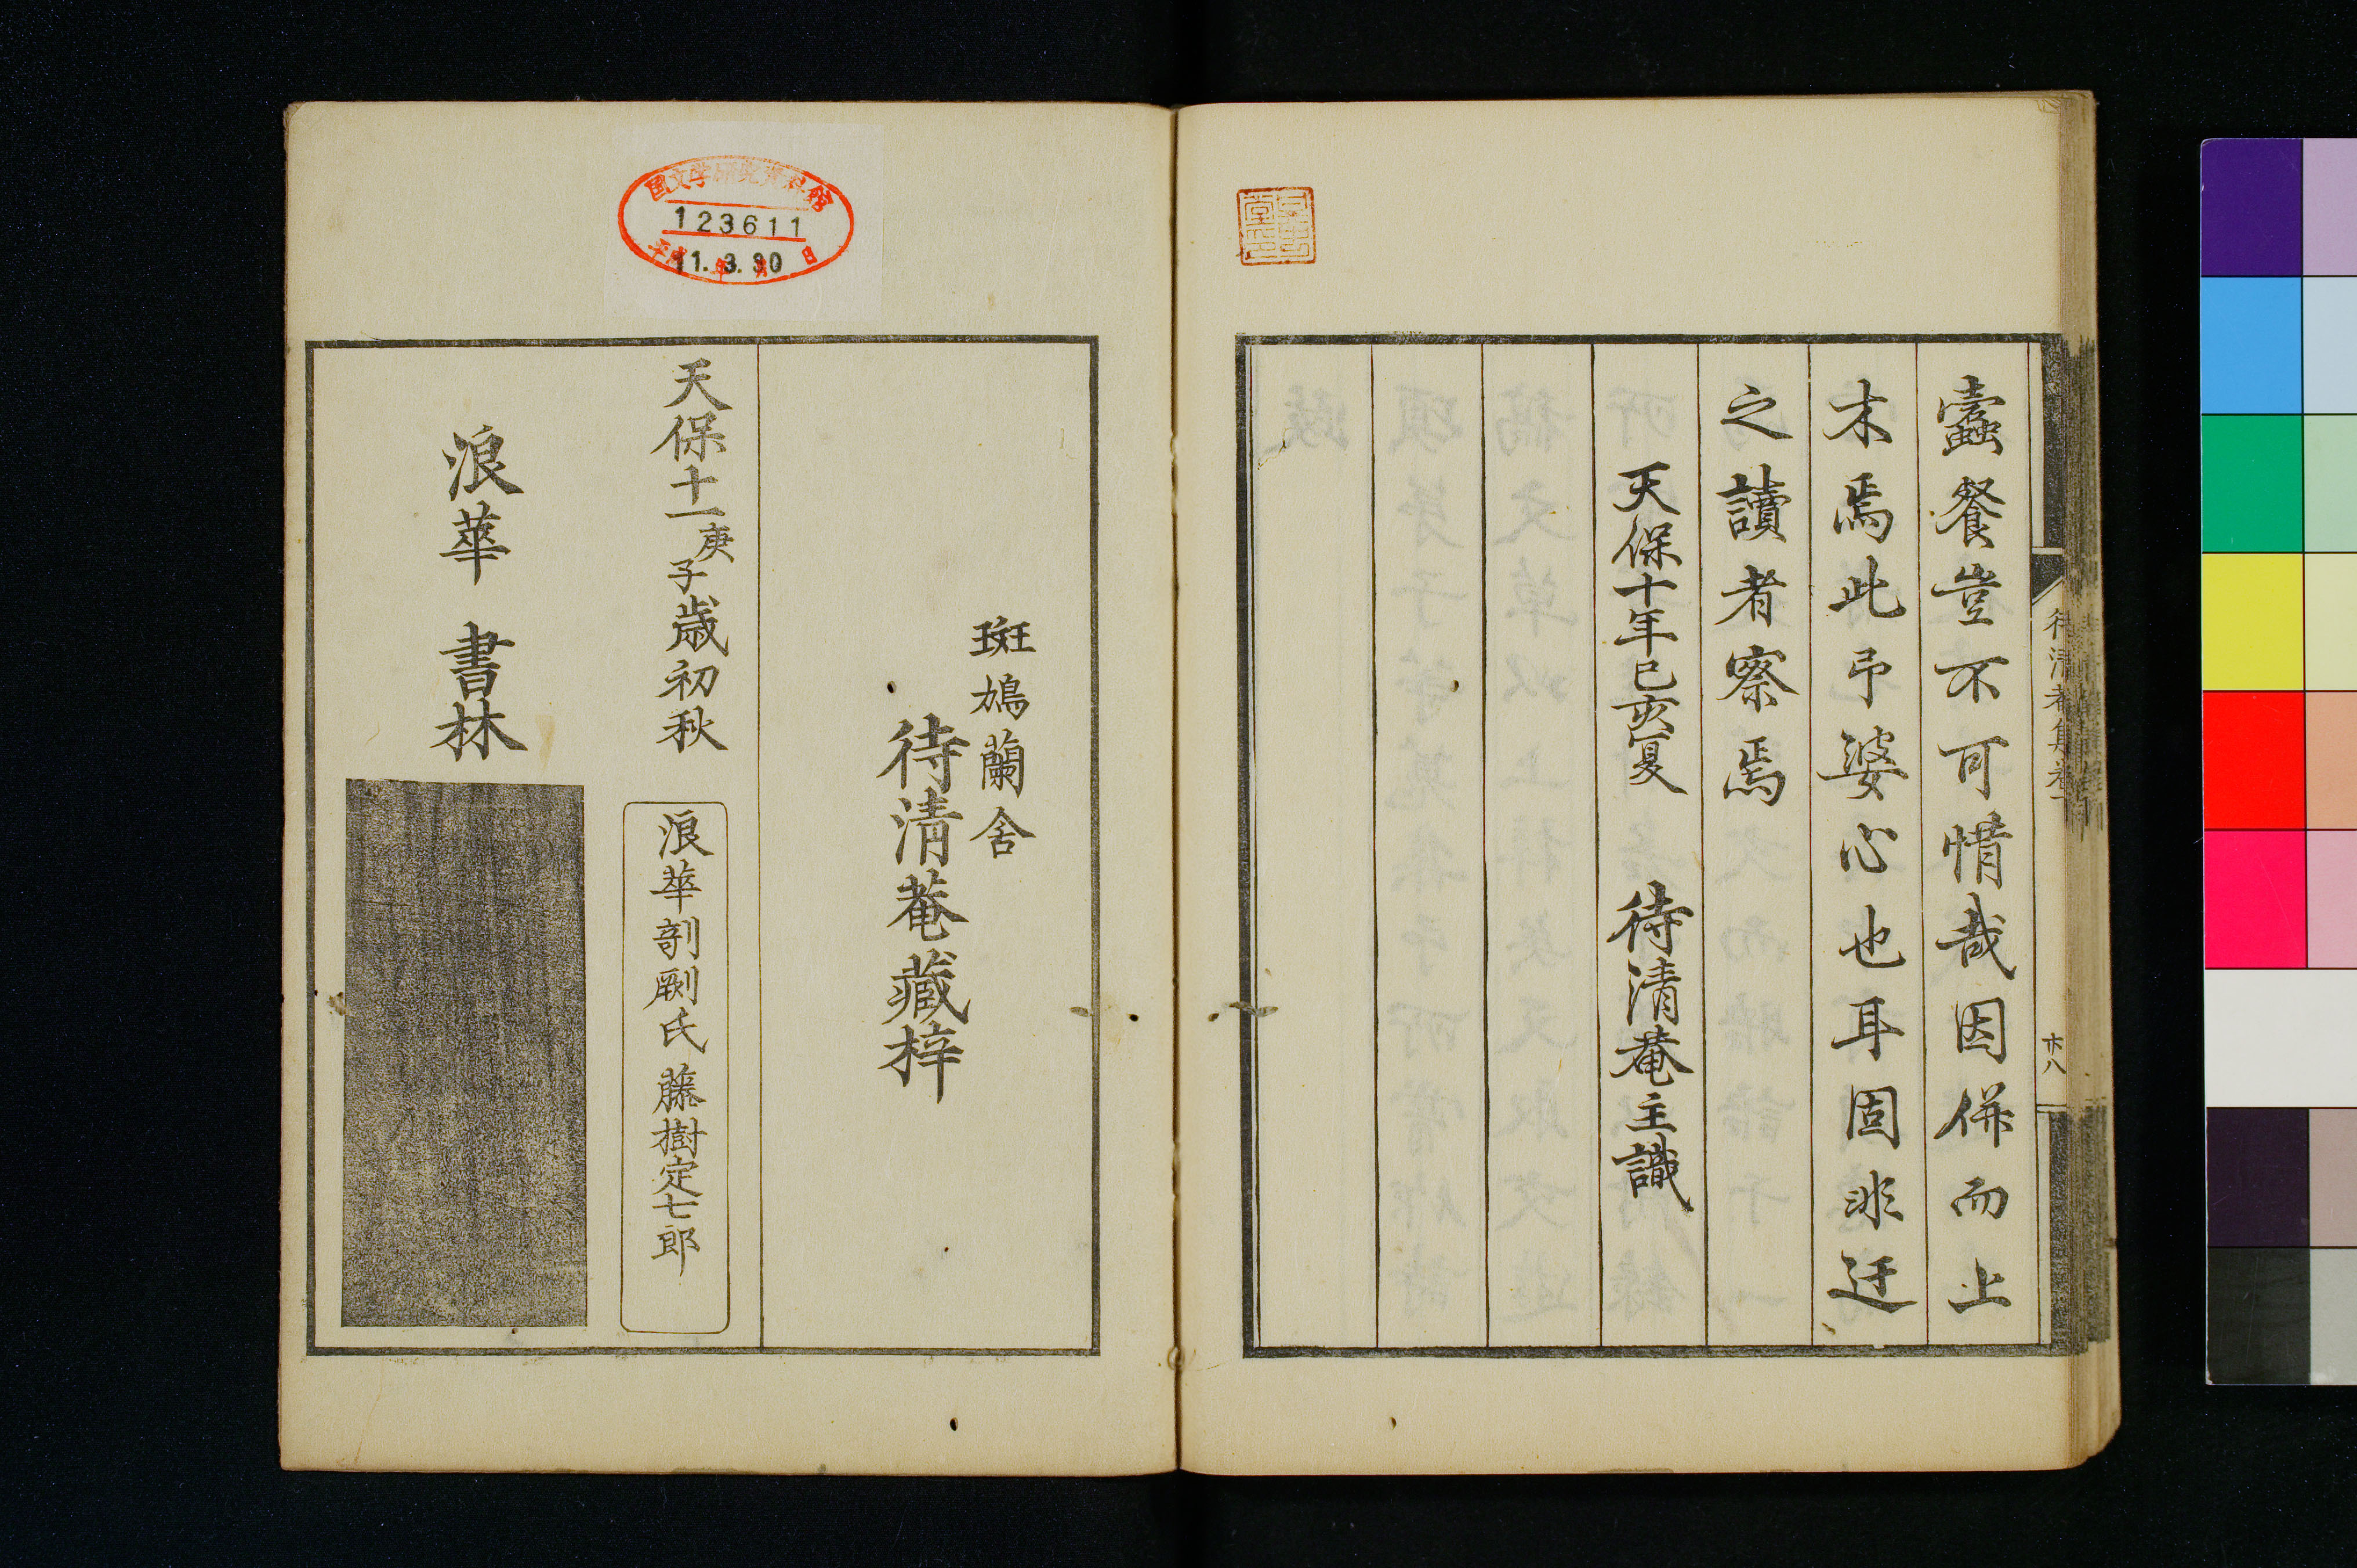 蠧餐豈不可惜哉因併而上
木焉此予婆心也耳固非迂
之讀者察焉
天保十年己亥夏　待清菴主識
待清孝集巻一
廿八
斑鳩蘭舍
待清菴藏梓
天保十一庚子歳初秋
浪華剞劂氏　藤樹定七郎
浪華　書林
国文学研究資料館
123611
平成11年3月30日